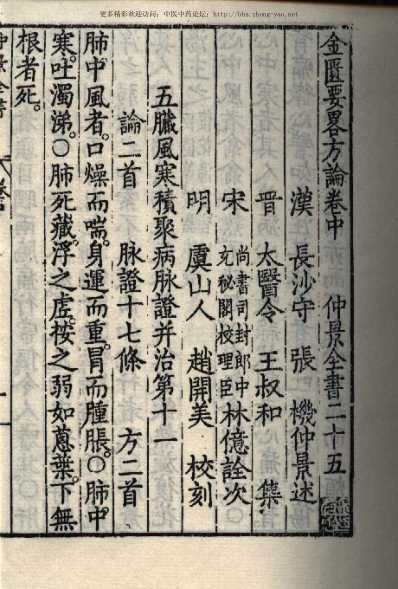 更多精彩欢迎访问:中医中药论坛:http://bbs.zhong-yao.net
金匱要畧方論卷中 仲景全書二十五
漢 長沙守 張 機仲景述
晉 太醫令 王叔和 集
宋 尚書司封郎中充秘閣校理臣林億詮次
明 虞山人 趙開美 校刻
五臟風寒積聚病脉證并治第十一
論二首 脉證十七條 方二首
肺中風者。口燥而喘。身運而重。冒而腫脹。○肺中
寒。吐濁涕。○肺死藏。浮之虛。按之弱如蔥葉。下無
根者死。